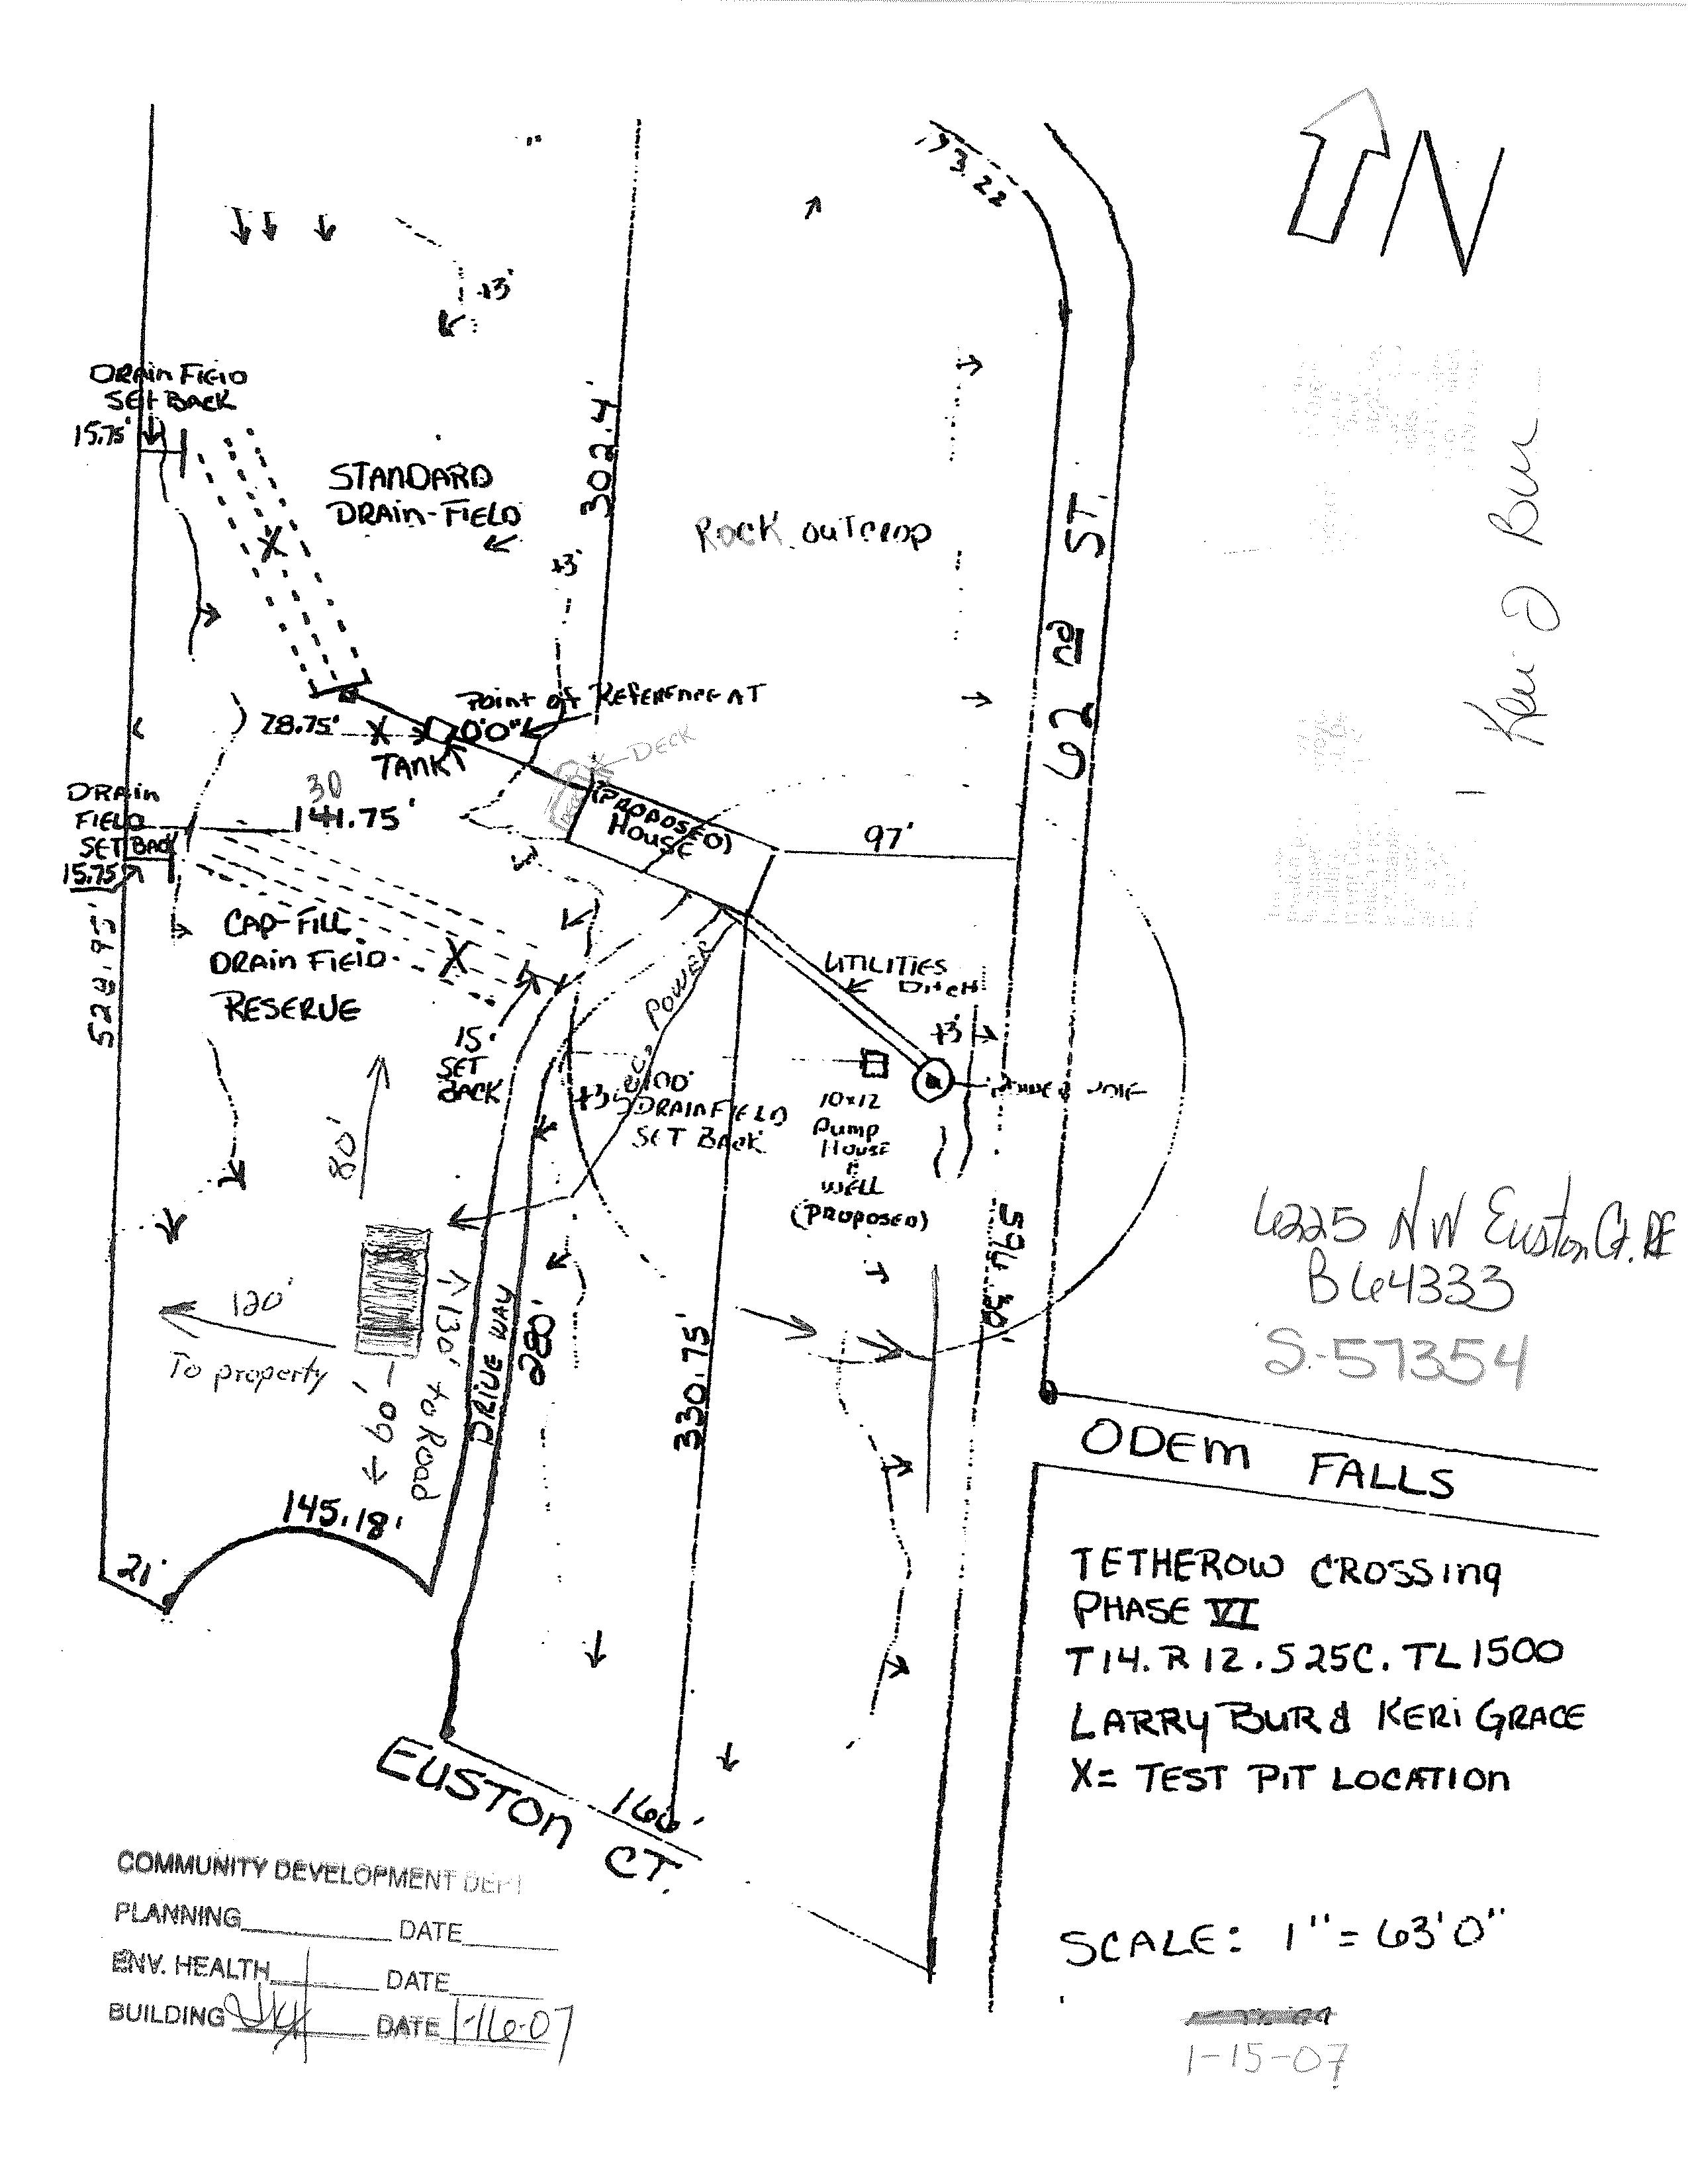 173.22
N
+3'
DRAIN FIELD
SET BACK
15.75'
302.4'
STANDARD
DRAIN-FIELD
X
ROCK OUTCROP
+3'
62 nd ST.
Keri D Bur
POINT OF REFERENCE AT
0'0"
28.75'
X
TANK
DECK
30
141.75'
(PROPOSED)
HOUSE
97'
DRAIN
FIELD
SET BACK
15.75'
528.95'
CAP-FILL
DRAIN FIELD
RESERVE
X
15'
SET
BACK
POWER
UTILITIES
DITCH
+3'
+3'
100'
DRAINFIELD
SET BACK
10x12
PUMP
HOUSE
&
WELL
(PROPOSED)
80'
120'
To property
130' to Road
60'
DRIVE WAY
280'
330.75'
145.18'
21'
6225 NW Euston Ct. RE
B64333
S-57354
ODEM FALLS
TETHEROW CROSSING
PHASE VI
T14. R12. S25C. TL1500
LARRY BUR & KERI GRACE
X= TEST PIT LOCATION
EUSTON CT.
SCALE: 1"=63'0"
1-15-07
COMMUNITY DEVELOPMENT DEPT
PLANNING DATE
ENV. HEALTH DATE
BUILDING DATE 1-16-07